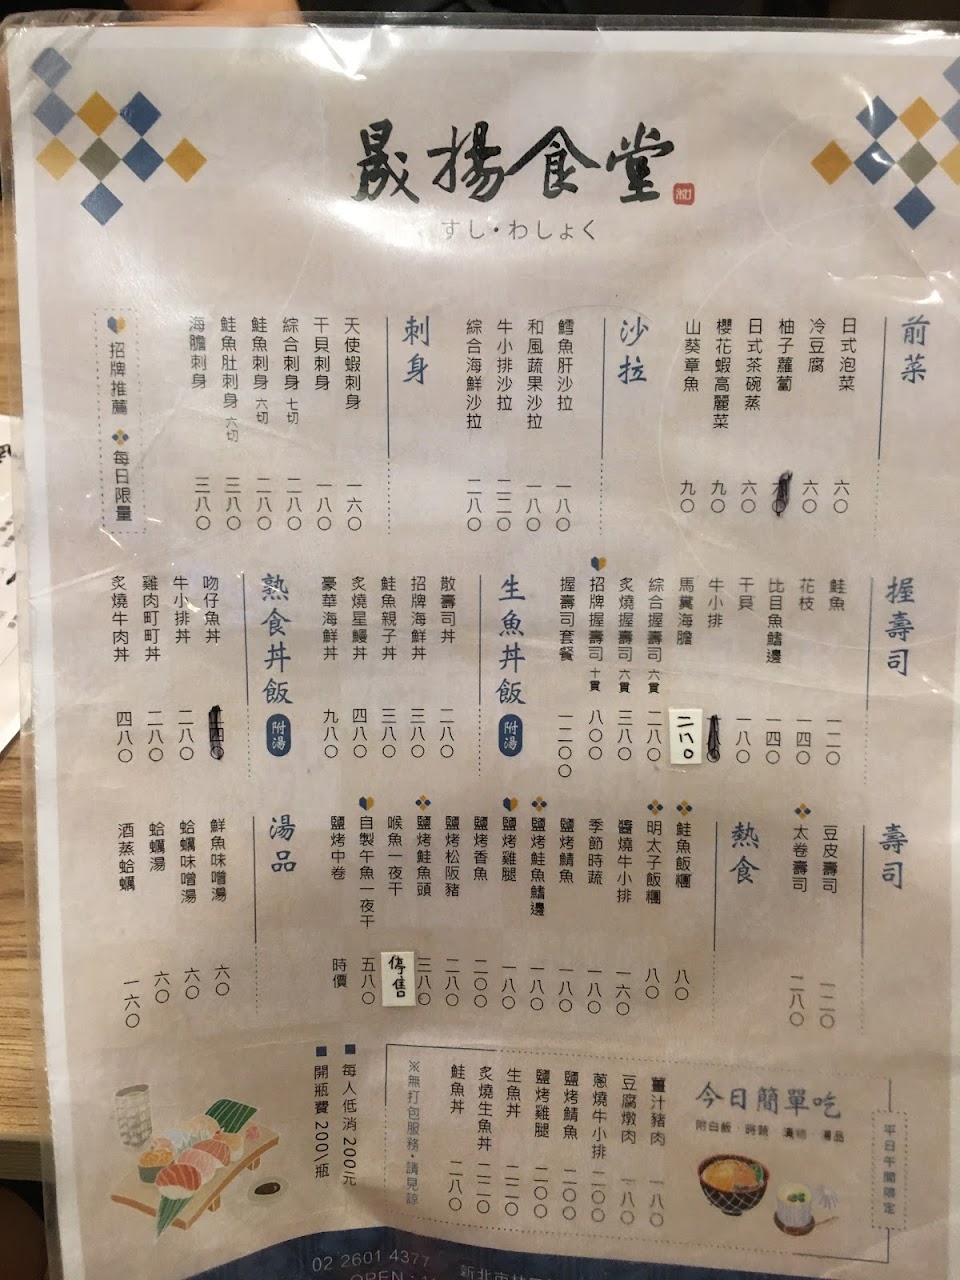 晟揚食堂
すし・わしょく
前菜
日式泡菜 六〇
冷豆腐 六〇
柚子蘿蔔
日式茶碗蒸 六〇
櫻花蝦高麗菜 九〇
山葵章魚 九〇
沙拉
鱈魚肝沙拉 一八〇
和風蔬果沙拉 一八〇
牛小排沙拉 二二〇
綜合海鮮沙拉 二八〇
刺身
天使蝦刺身 一六〇
干貝刺身 一八〇
綜合刺身 七切 二八〇
鮭魚刺身 六切 二八〇
鮭魚肚刺身 六切 三八〇
海膽刺身 三八〇
招牌推薦 每日限量
握壽司
鮭魚 一二〇
花枝 一四〇
比目魚鰭邊 一四〇
干貝 一八〇
牛小排
馬糞海膽 二八〇
綜合握壽司 六貫 二八〇
炙燒握壽司 六貫 三八〇
招牌握壽司 十貫 八〇〇
握壽司套餐 一二〇〇
生魚丼飯 附湯
散壽司丼 二八〇
招牌海鮮丼 三八〇
鮭魚親子丼 三八〇
炙燒星鰻丼 四八〇
豪華海鮮丼 九八〇
熟食丼飯 附湯
吻仔魚丼
牛小排丼 二八〇
雞肉町町丼 二八〇
炙燒牛肉丼 四八〇
壽司
豆皮壽司 一二〇
太卷壽司 二八〇
熱食
鮭魚飯糰 八〇
明太子飯糰 八〇
醬燒牛小排 一六〇
季節時蔬 一八〇
鹽烤鯖魚 一八〇
鹽烤鮭魚鰭邊 一八〇
鹽烤雞腿 一八〇
鹽烤香魚 二〇〇
鹽烤松阪豬 二八〇
鹽烤鮭魚頭 三八〇
喉魚一夜干 停售
自製午魚一夜干 五八〇
鹽烤中卷 時價
湯品
鮮魚味噌湯 六〇
蛤蠣味噌湯 六〇
蛤蠣湯 六〇
酒蒸蛤蠣 一六〇
平日午間限定
今日簡單吃
附白飯・時蔬 漬物 湯品
薑汁豬肉 一八〇
豆腐燉肉 一八〇
蔥燒牛小排 二〇〇
鹽烤鯖魚 二〇〇
鹽烤雞腿 二〇〇
生魚丼 二二〇
炙燒生魚丼 二二〇
鮭魚丼 二八〇
※無打包服務・請見諒
■ 每人低消 200元
■ 開瓶費 200\瓶
02 2601 4377
OPEN
新北市林